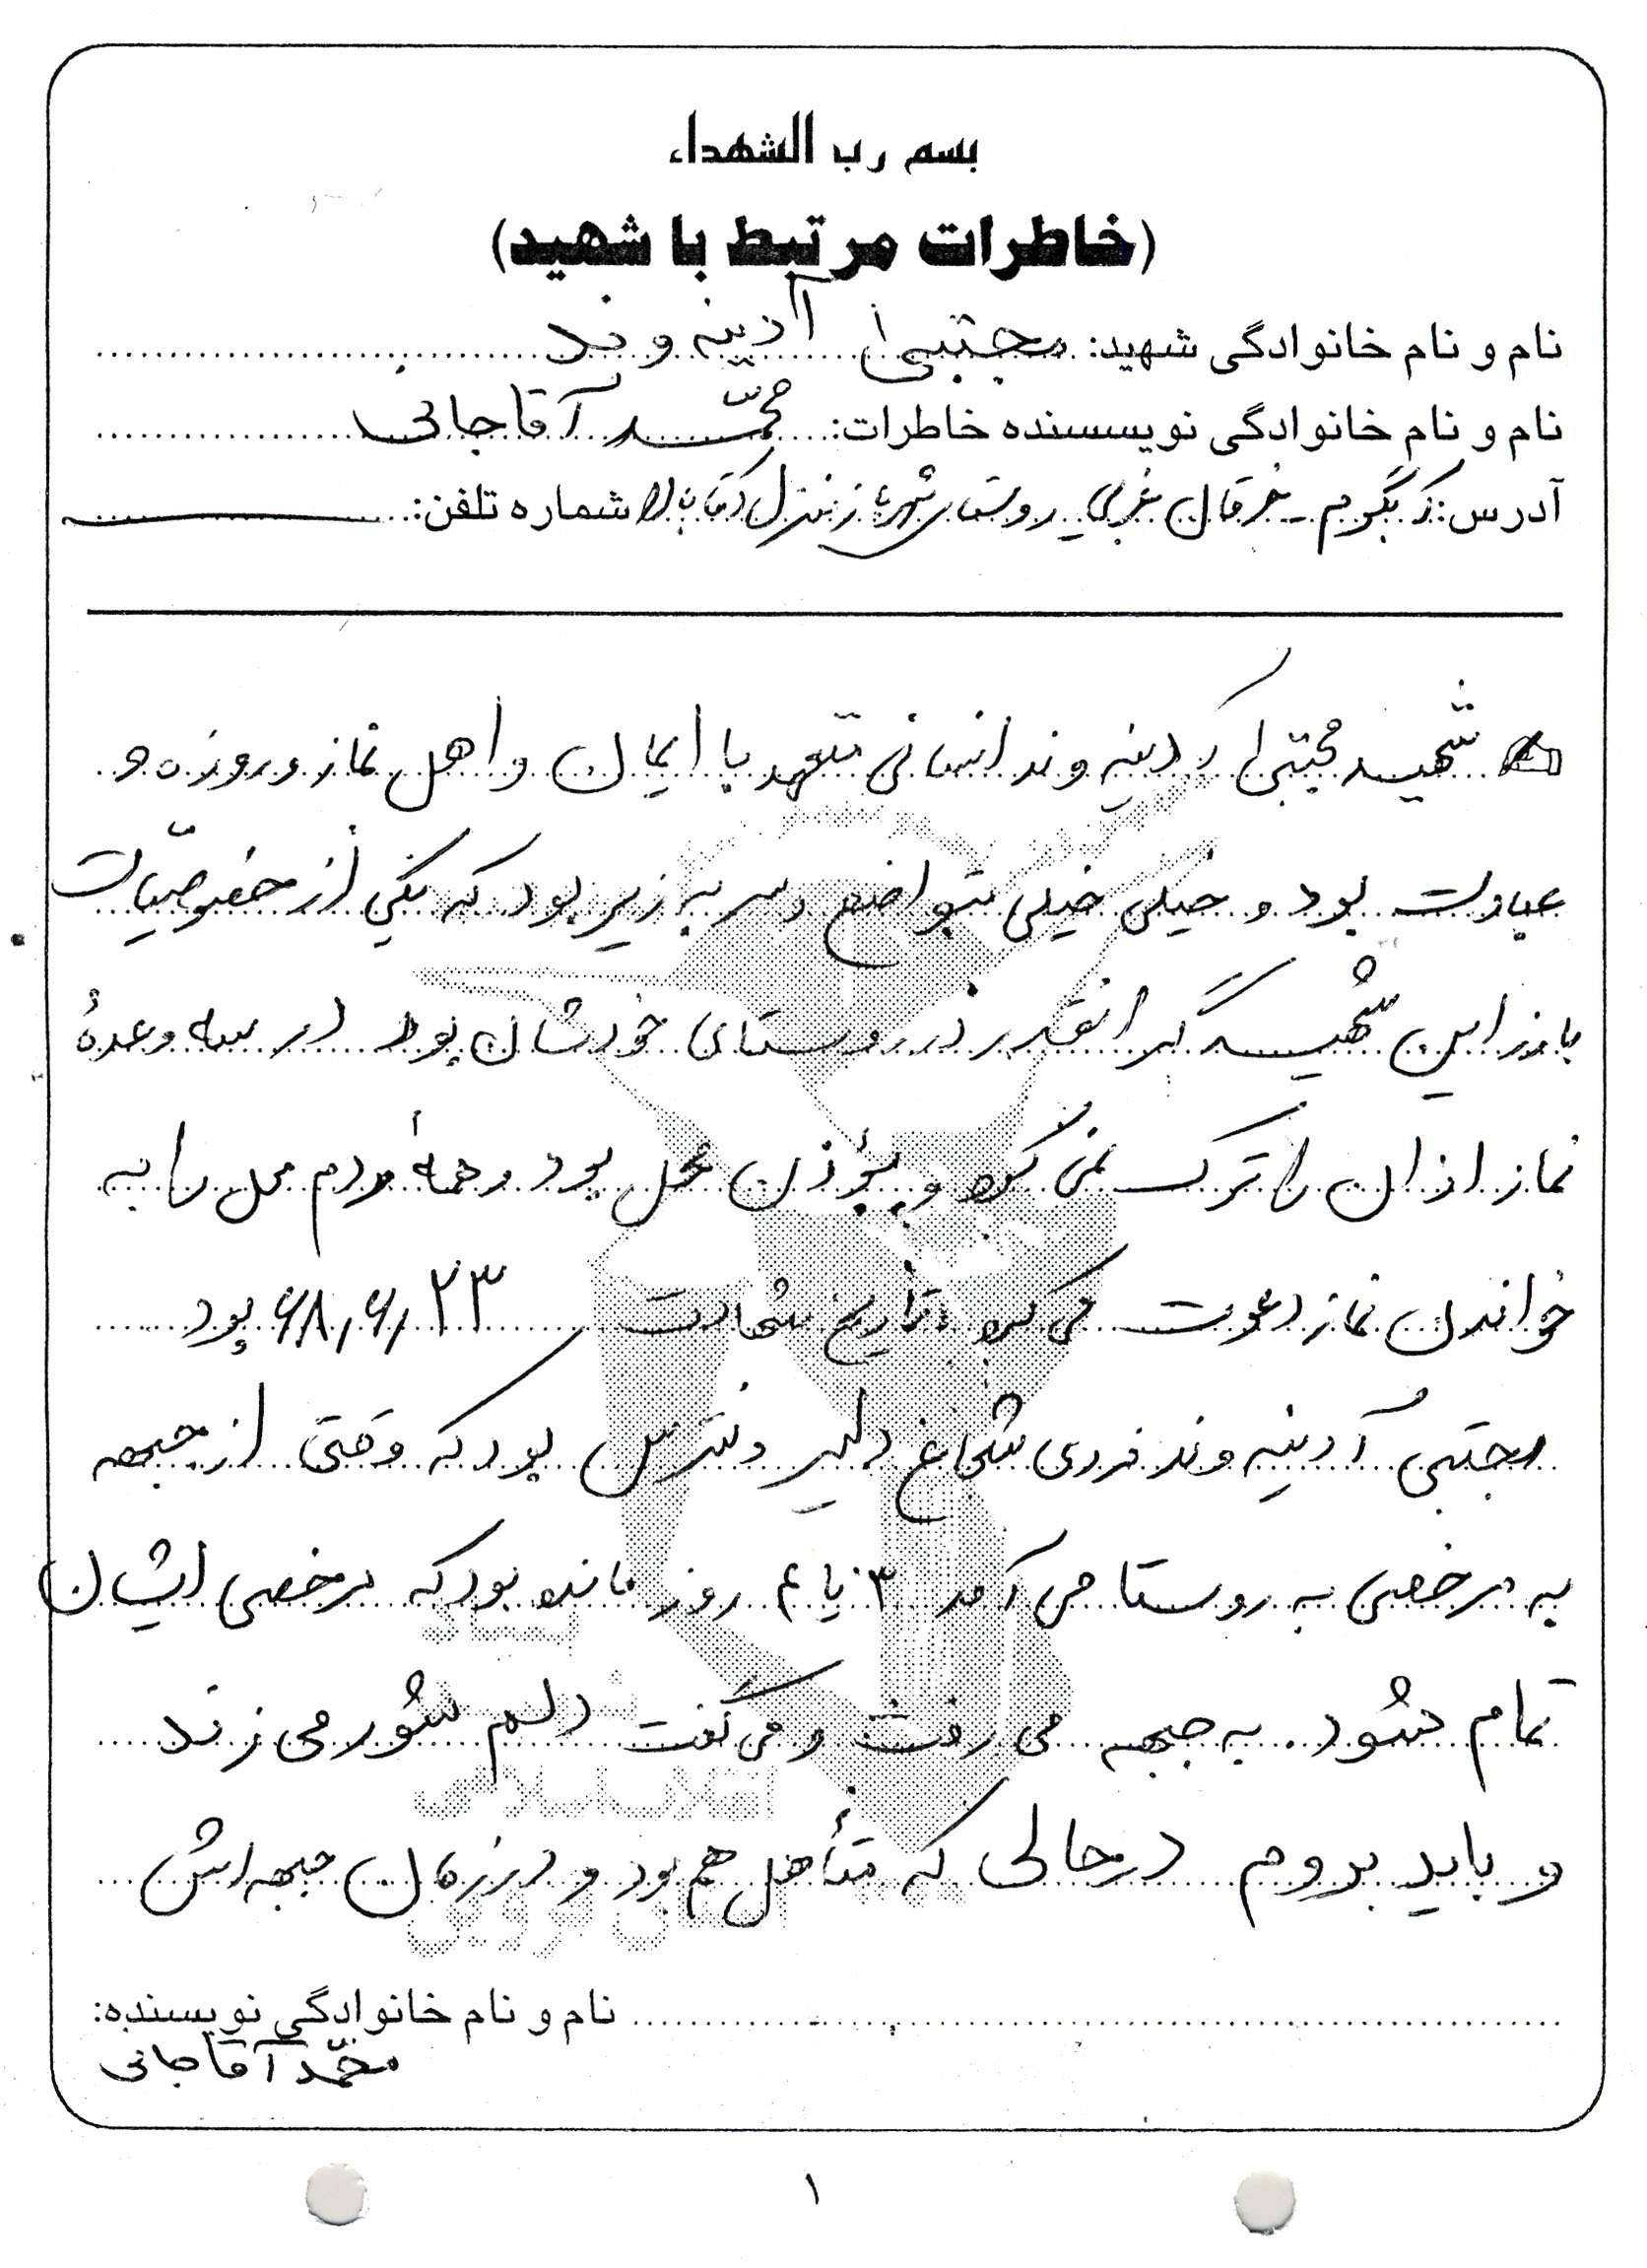 بسم رب الشهداء
(خاطرات مرتبط با شهید)
نام و نام خانوادگی شهید: مجتبی آدینه وند
نام و نام خانوادگی نویسنده خاطرات: محمّد آقاجانی
آدرس: خرقان غربی روستای منزل شماره تلفن:
شهید مجتبی آدینه وند انسانی متعهد با ایمان و اهل نماز و روزه و
عبادت بود و خیلی خیلی متواضع و سر به زیر بود که یکی از خصوصیّات
بارز این شهید گرانقدر در روستای خودشان بود در سه وعدهٔ
نماز اذان را ترک نمی کرد و مؤذن محل بود و همهٔ مردم محل را به
خواندن نماز دعوت می کرد تاریخ شهادت ۶۸٫۶٫۲۳ بود
مجتبی آدینه وند فردی شجاع دلیر و نترس بود که وقتی از جبهه
به مرخصی به روستا می آمد ۳ یا ۴ روز مانده بود که مرخصی ایشان
تمام شود. به جبهه می رفت و می گفت دلم شور می زند
و باید بروم درحالی که متأهل هم بود و در زمان جبهه اش
نام و نام خانوادگی نویسنده:
محمّد آقاجانی
بنیاد
شهید
انقلاب اسلامی
استان قزوین
۱